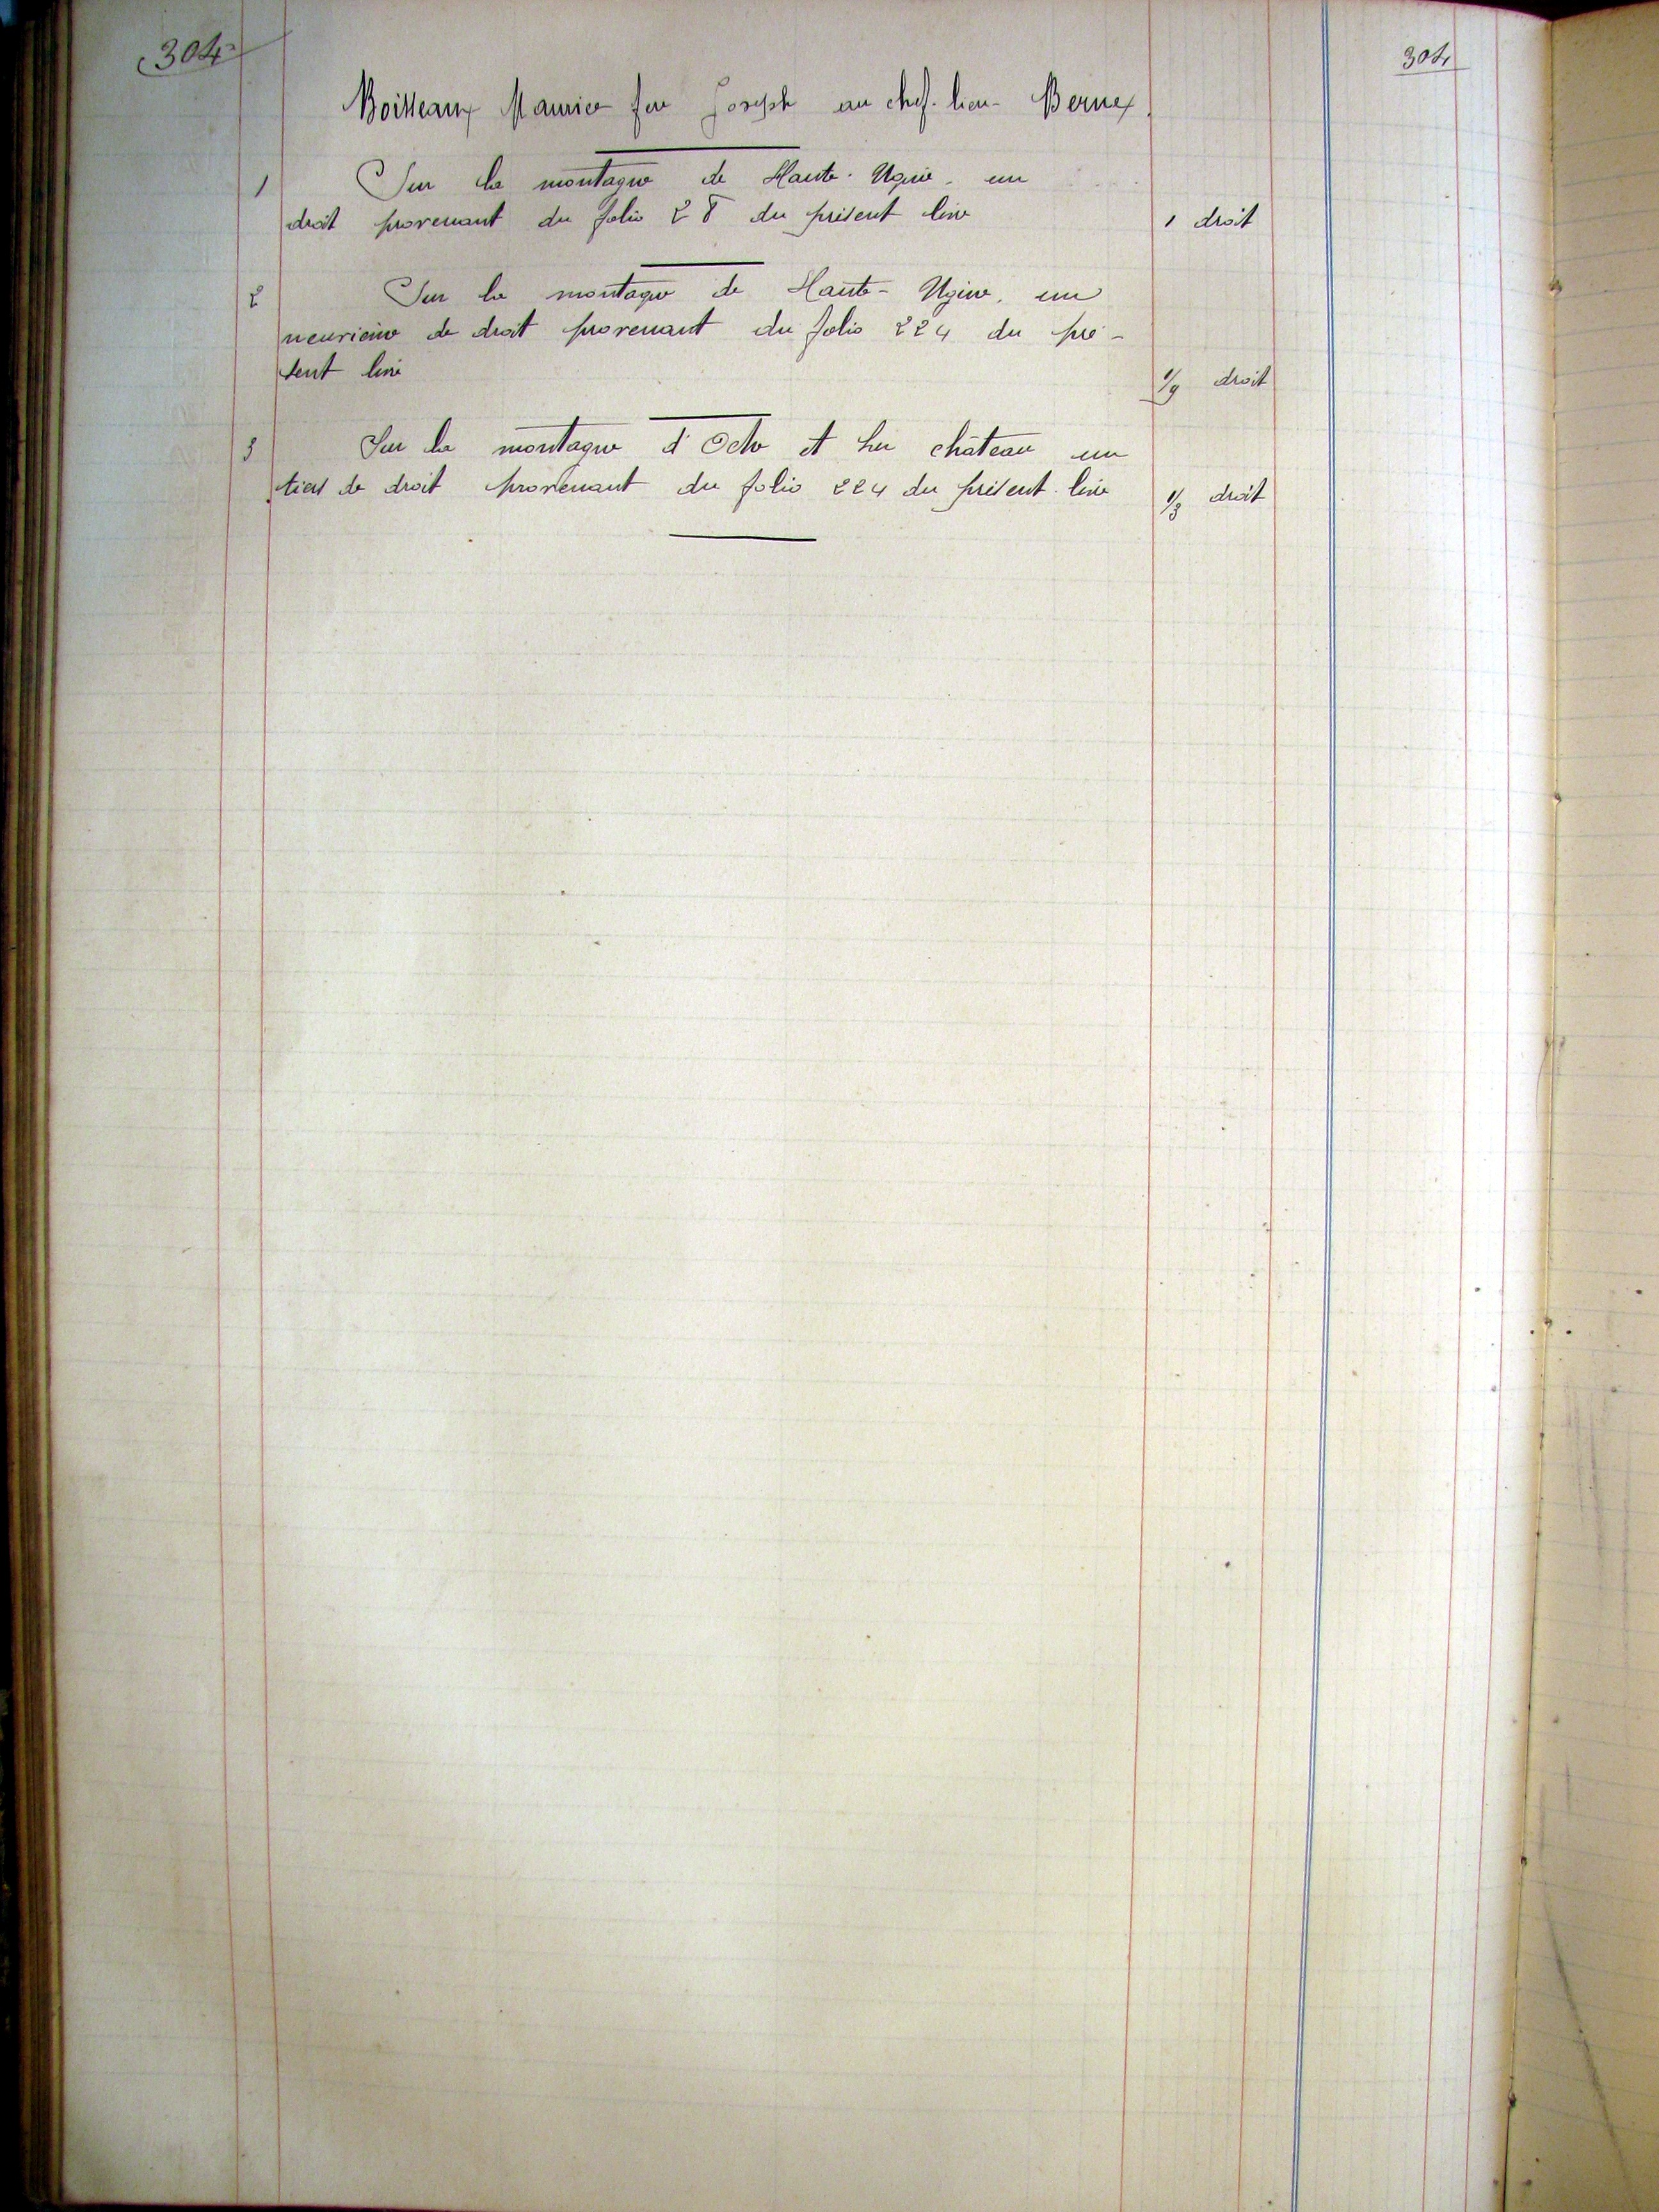 304
304
Boisseaux Maurice feu Joseph au chef-lieu Bernex
1 Sur la montagne de Haute-Ugine, un
droit provenant du folio 28 du présent livre 1 droit
2 Sur la montagne de Haute-Ugine, un
neuvième de droit provenant du folio 224 du pré-
sent livre 1/9 droit
3 Sur la montagne d'Oche et château un
tiers de droit provenant du folio 224 du présent livre 1/3 droit